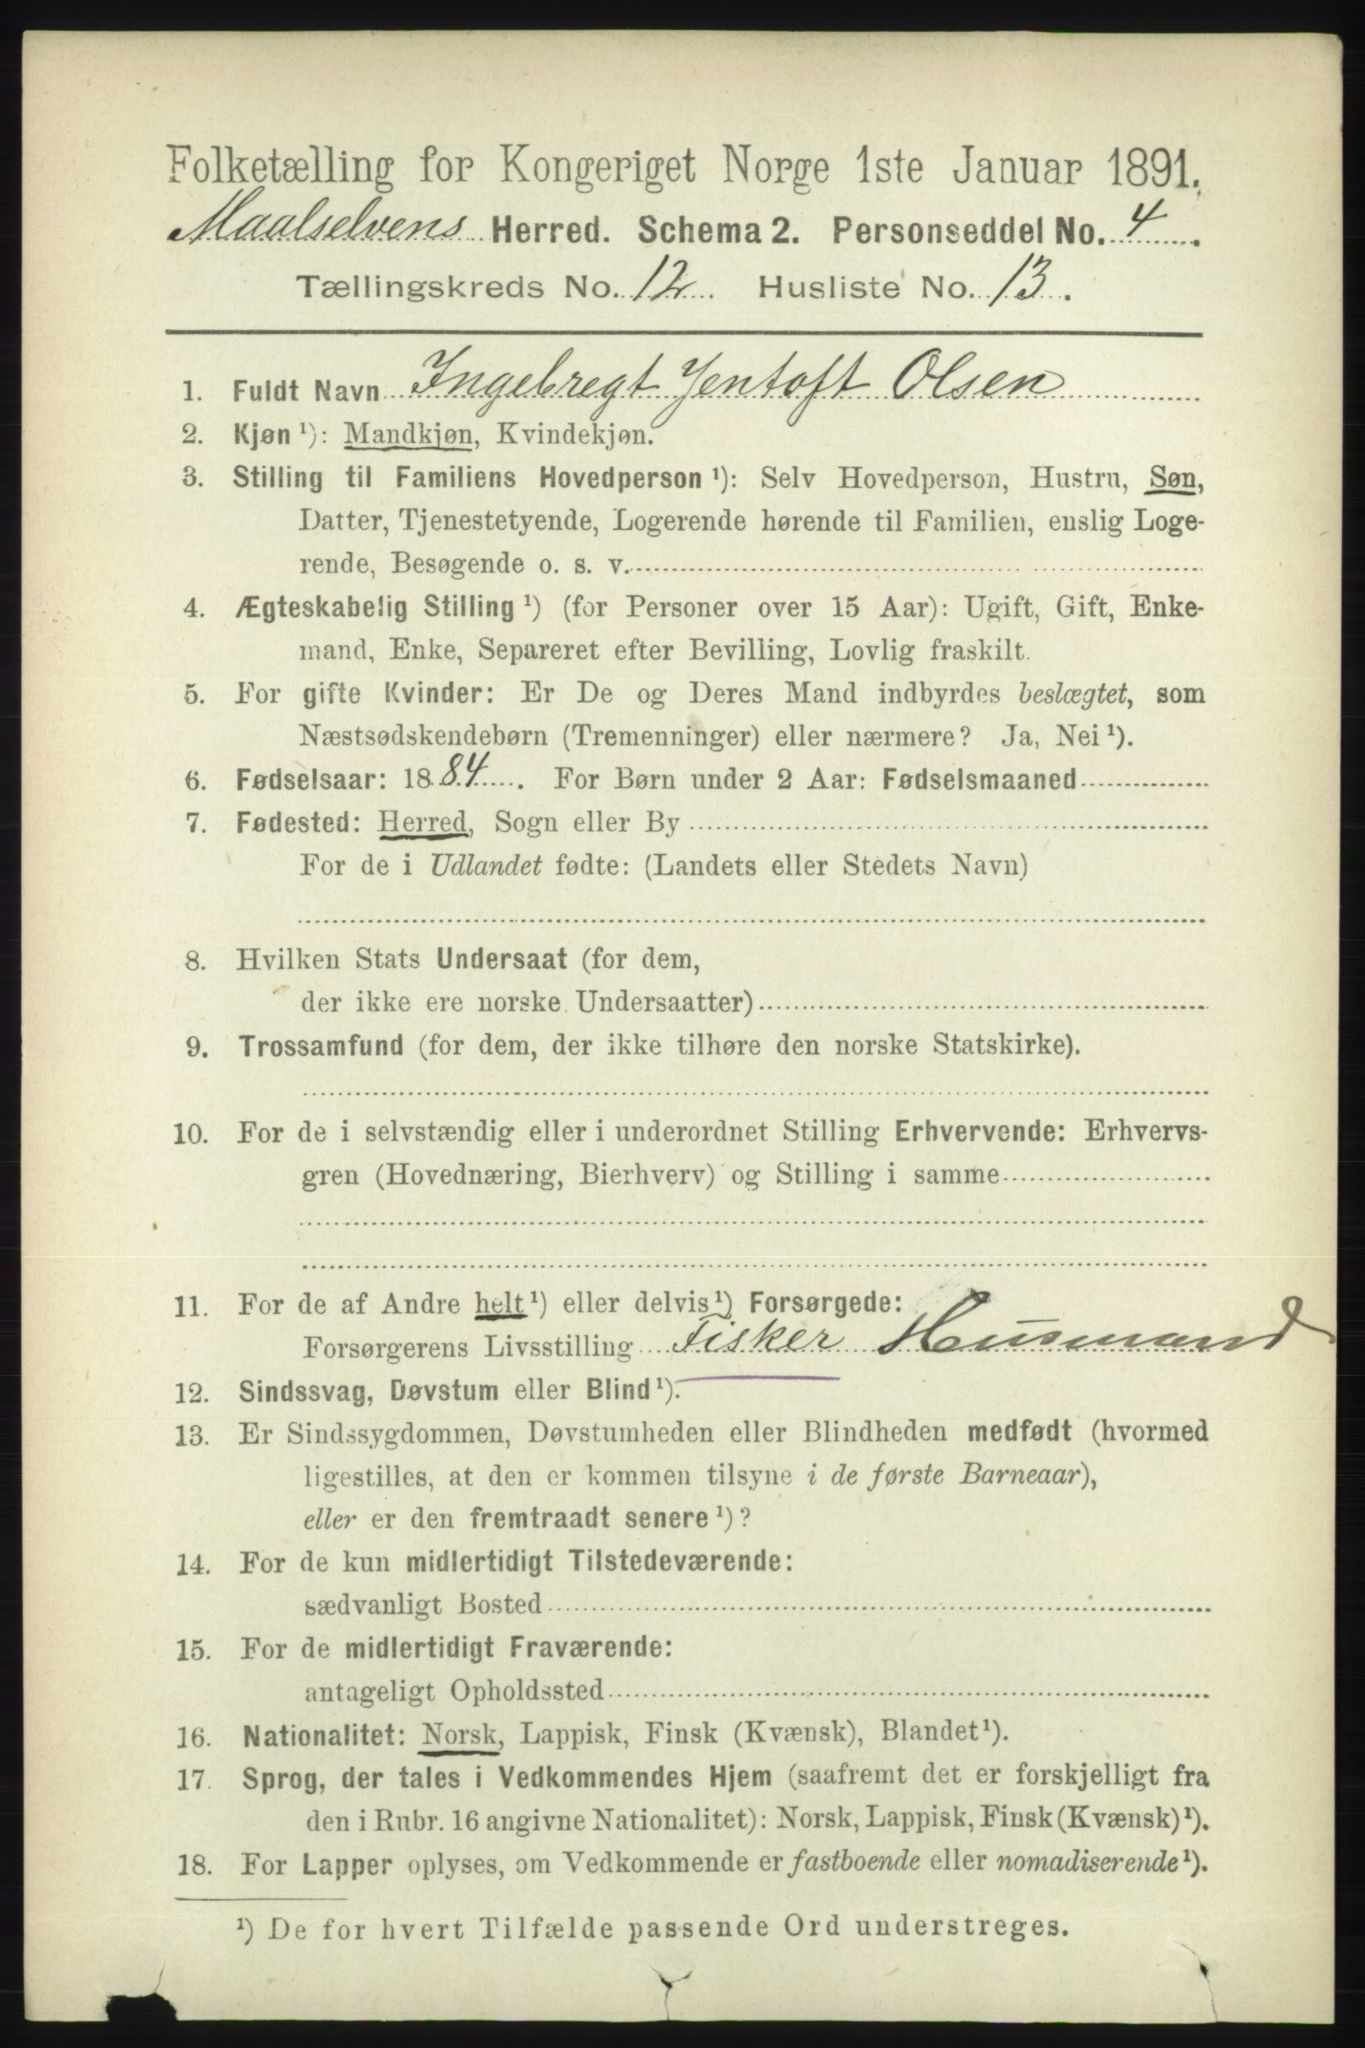 Folketælling for Kongeriget Norge 1ste Januar 1891.
Maalselvens Herred. Schema 2. Personseddel No. 4.
Tællingskreds No. 12. Husliste No. 13.
1. Fuldt Navn Ingebregt Jentoft Olsen
2. Kjøn ¹): Mandkjøn, Kvindekjøn.
3. Stilling til Familiens Hovedperson ¹): Selv Hovedperson, Hustru, Søn,
Datter, Tjenestetyende, Logerende hørende til Familien, enslig Loge-
rende, Besøgende o. s. v.
4. Ægteskabelig Stilling ¹) (for Personer over 15 Aar): Ugift, Gift, Enke-
mand, Enke, Separeret efter Bevilling, Lovlig fraskilt.
5. For gifte Kvinder: Er De og Deres Mand indbyrdes beslægtet, som
Næstsødskendebørn (Tremenninger) eller nærmere? Ja, Nei ¹).
6. Fødselsaar: 1884. For Børn under 2 Aar: Fødselsmaaned
7. Fødested: Herred, Sogn eller By
For de i Udlandet fødte: (Landets eller Stedets Navn)
8. Hvilken Stats Undersaat (for dem,
der ikke ere norske Undersaatter)
9. Trossamfund (for dem, der ikke tilhøre den norske Statskirke).
10. For de i selvstændig eller i underordnet Stilling Erhvervende: Erhvervs-
gren (Hovednæring, Bierhverv) og Stilling i samme
11. For de af Andre helt ¹) eller delvis ¹) Forsørgede:
Forsørgerens Livsstilling Fisker Husmand
12. Sindssvag, Døvstum eller Blind ¹).
13. Er Sindssygdommen, Døvstumheden eller Blindheden medfødt (hvormed
ligestilles, at den er kommen tilsyne i de første Barneaar),
eller er den fremtraadt senere ¹)?
14. For de kun midlertidigt Tilstedeværende:
sædvanligt Bosted
15. For de midlertidigt Fraværende:
antageligt Opholdssted
16. Nationalitet: Norsk, Lappisk, Finsk (Kvænsk), Blandet ¹).
17. Sprog, der tales i Vedkommendes Hjem (saafremt det er forskjelligt fra
den i Rubr. 16 angivne Nationalitet): Norsk, Lappisk, Finsk (Kvænsk) ¹).
18. For Lapper oplyses, om Vedkommende er fastboende eller nomadiserende ¹).
¹) De for hvert Tilfælde passende Ord understreges.